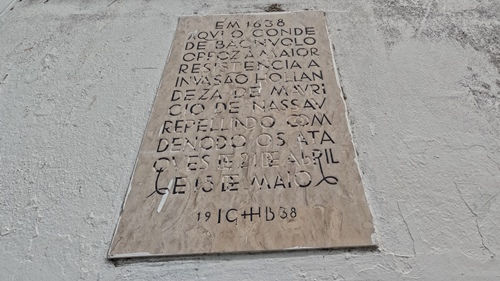 EM 1638
AQVI O CONDE
DE BAGNVOLO
OPPOZ A MAIOR
RESISTENCIA A
INVASÃO HOLLAN
DEZA DE MAVRI
CIO DE NASSAV
REPELLINDO COM
DENODO OS ATA
QVES DE 21 DE ABRIL
E 18 DE MAIO
19 IGHB 38